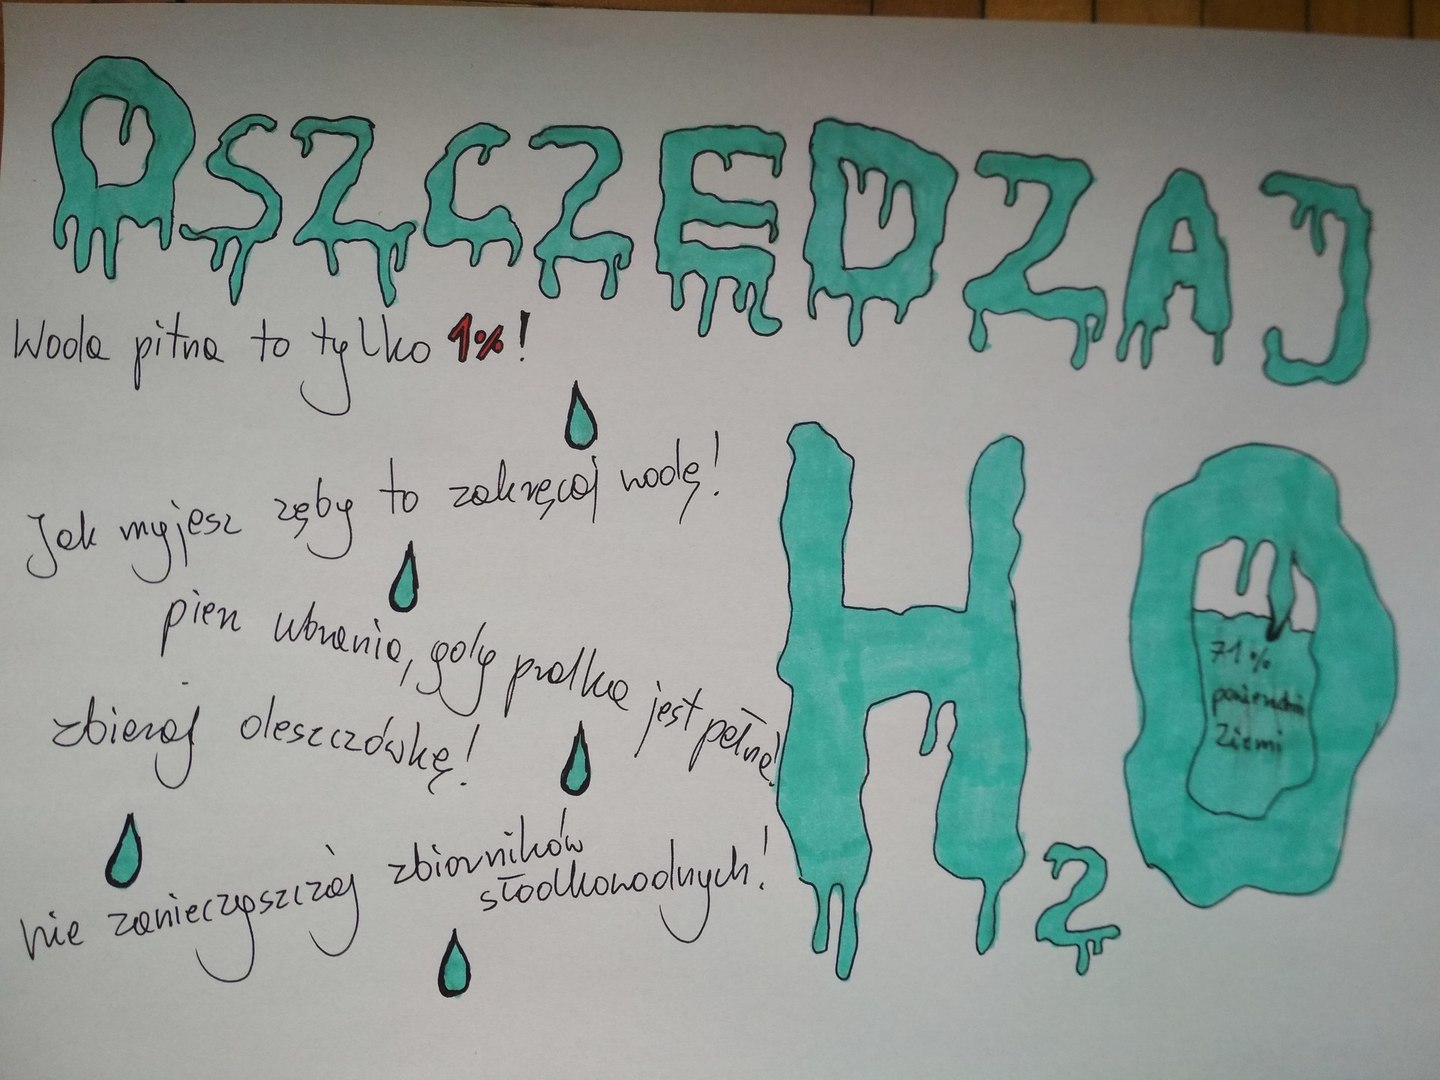 OSZCZĘDZAJ
H2O
Woda pitna to tylko 1%!
Jak myjesz zęby to zakręcaj wodę!
pierz ubrania, gdy pralka jest pełna!
zbieraj deszczówkę!
nie zanieczyszczaj zbiorników
słodkowodnych!
71%
powierzchni
Ziemi